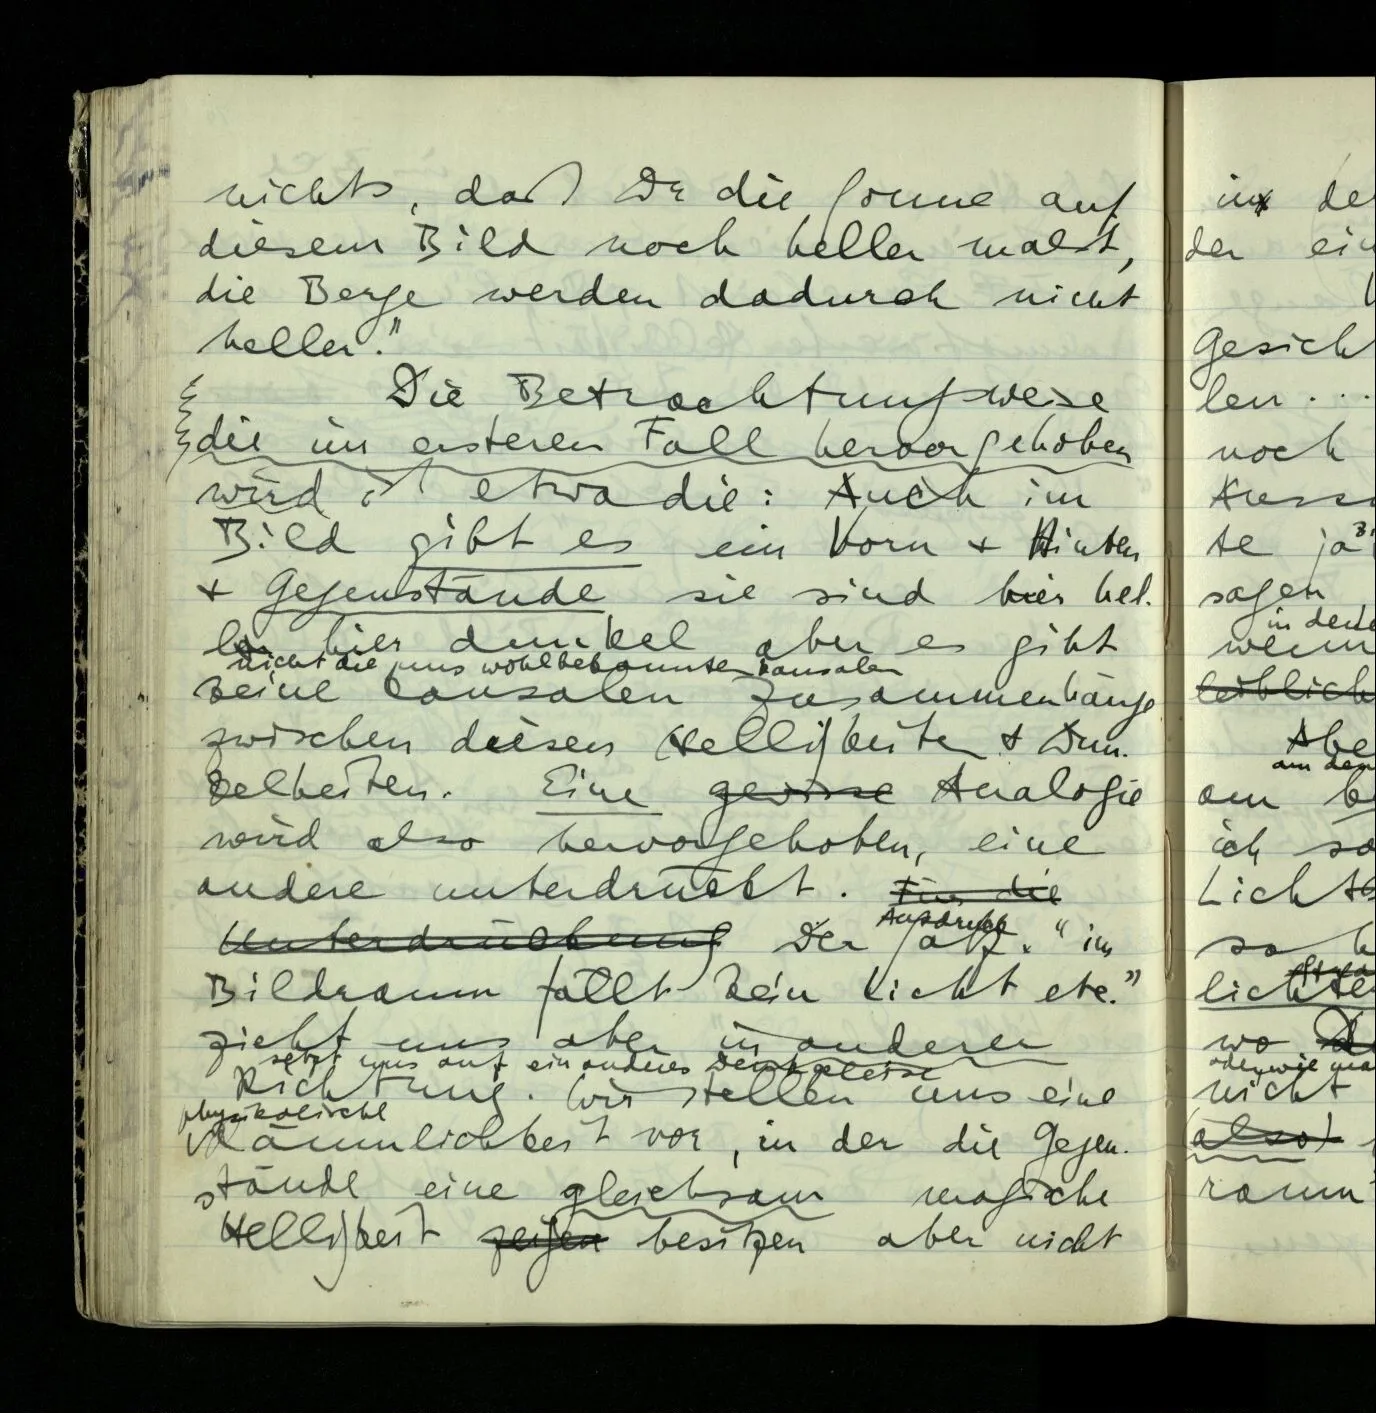 nichts, daß Du die Sonne auf
diesem Bild noch heller malst,
die Berge werden dadurch nicht
heller."
Die Betrachtungsweise
die im ersteren Fall hervorgehoben
wird ist etwa die: Auch im
Bild gibt es ein Vorn + Hinten
+ Gegenstände sie sind hier hel-
ler hier dunkel aber es gibt
nicht die uns wohlbekannten kausalen
keine kausalen Zusammenhänge
zwischen diesen Helligkeiten + Dun-
kelheiten. Eine gewisse Analogie
wird also hervorgehoben, eine
andere unterdrückt. Für die
Ausdruck
Unterdrückung Der Satz "im
Bildraum fällt kein Licht etc."
zieht uns aber in anderer
setzt uns auf ein anderes Denkgeleise
Richtung. Wir stellen uns eine
physikalische
Räumlichkeit vor, in der die Gegen-
stände eine gleichsam magische
Helligkeit zeigen besitzen aber nicht
in der
der ein
Gesich
len...
noch
te ja
sagen
in
wenn
leiblich
Abe
an den
am
ich
Licht
so
licht
wo
oder wie
nicht
also)
raum